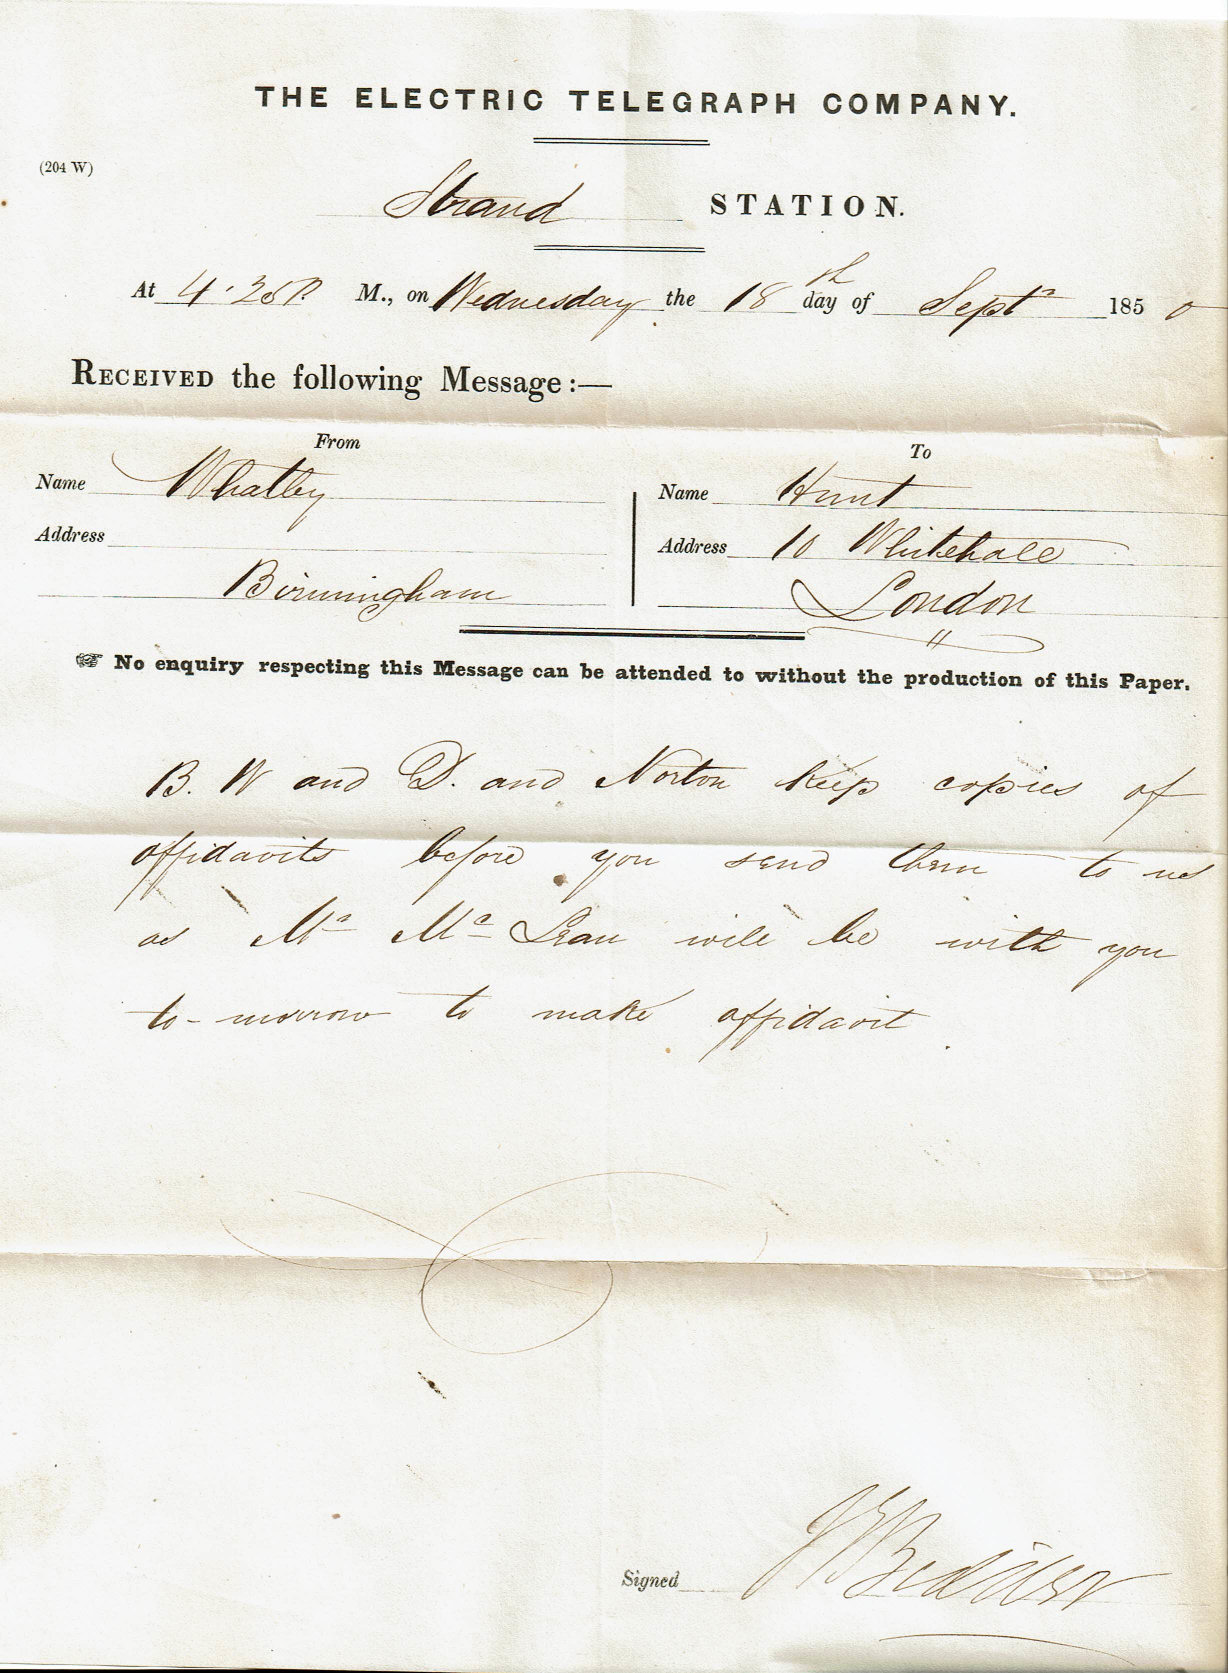 THE ELECTRIC TELEGRAPH COMPANY.
(204 W)
Strand STATION.
At 4.35 P. M., on Wednesday the 18th day of Septr 1850
RECEIVED the following Message:—
From
To
Name Whatley
Name Hunt
Address
Address 10 Whitehall
Birmingham
London
☞ No enquiry respecting this Message can be attended to without the production of this Paper.
B. W and D. and Norton keep copies of
affidavits before you send them to us
as Mr Mc Lean will be with you
to-morrow to make affidavit
Signed